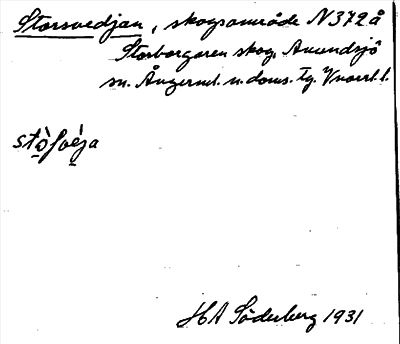 Storsvedjan, skogsområde N 372 å
Storborgaren skog, Anundsjö
sn. Ångerml. n. doms. tg. Vnorrl. l.
HA Söderberg 1931